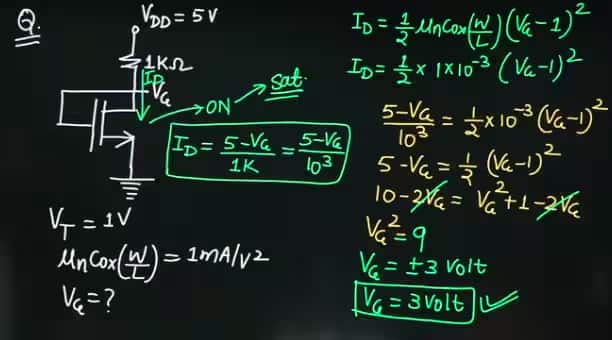 Q.
V_DD = 5V
1KΩ
I_D
V_G
→ ON → Sat.
I_D = (5-V_G)/1K = (5-V_G)/10³
V_T = 1V
μnCox(W/L) = 1mA/V²
V_G = ?
I_D = 1/2 μnCox(W/L)(V_G-1)²
I_D = 1/2 × 1×10⁻³ (V_G-1)²
(5-V_G)/10³ = 1/2 ×10⁻³ (V_G-1)²
5-V_G = 1/2 (V_G-1)²
10-2V_G = V_G²+1-2V_G
V_G² = 9
V_G = ±3 volt
V_G = 3 volt